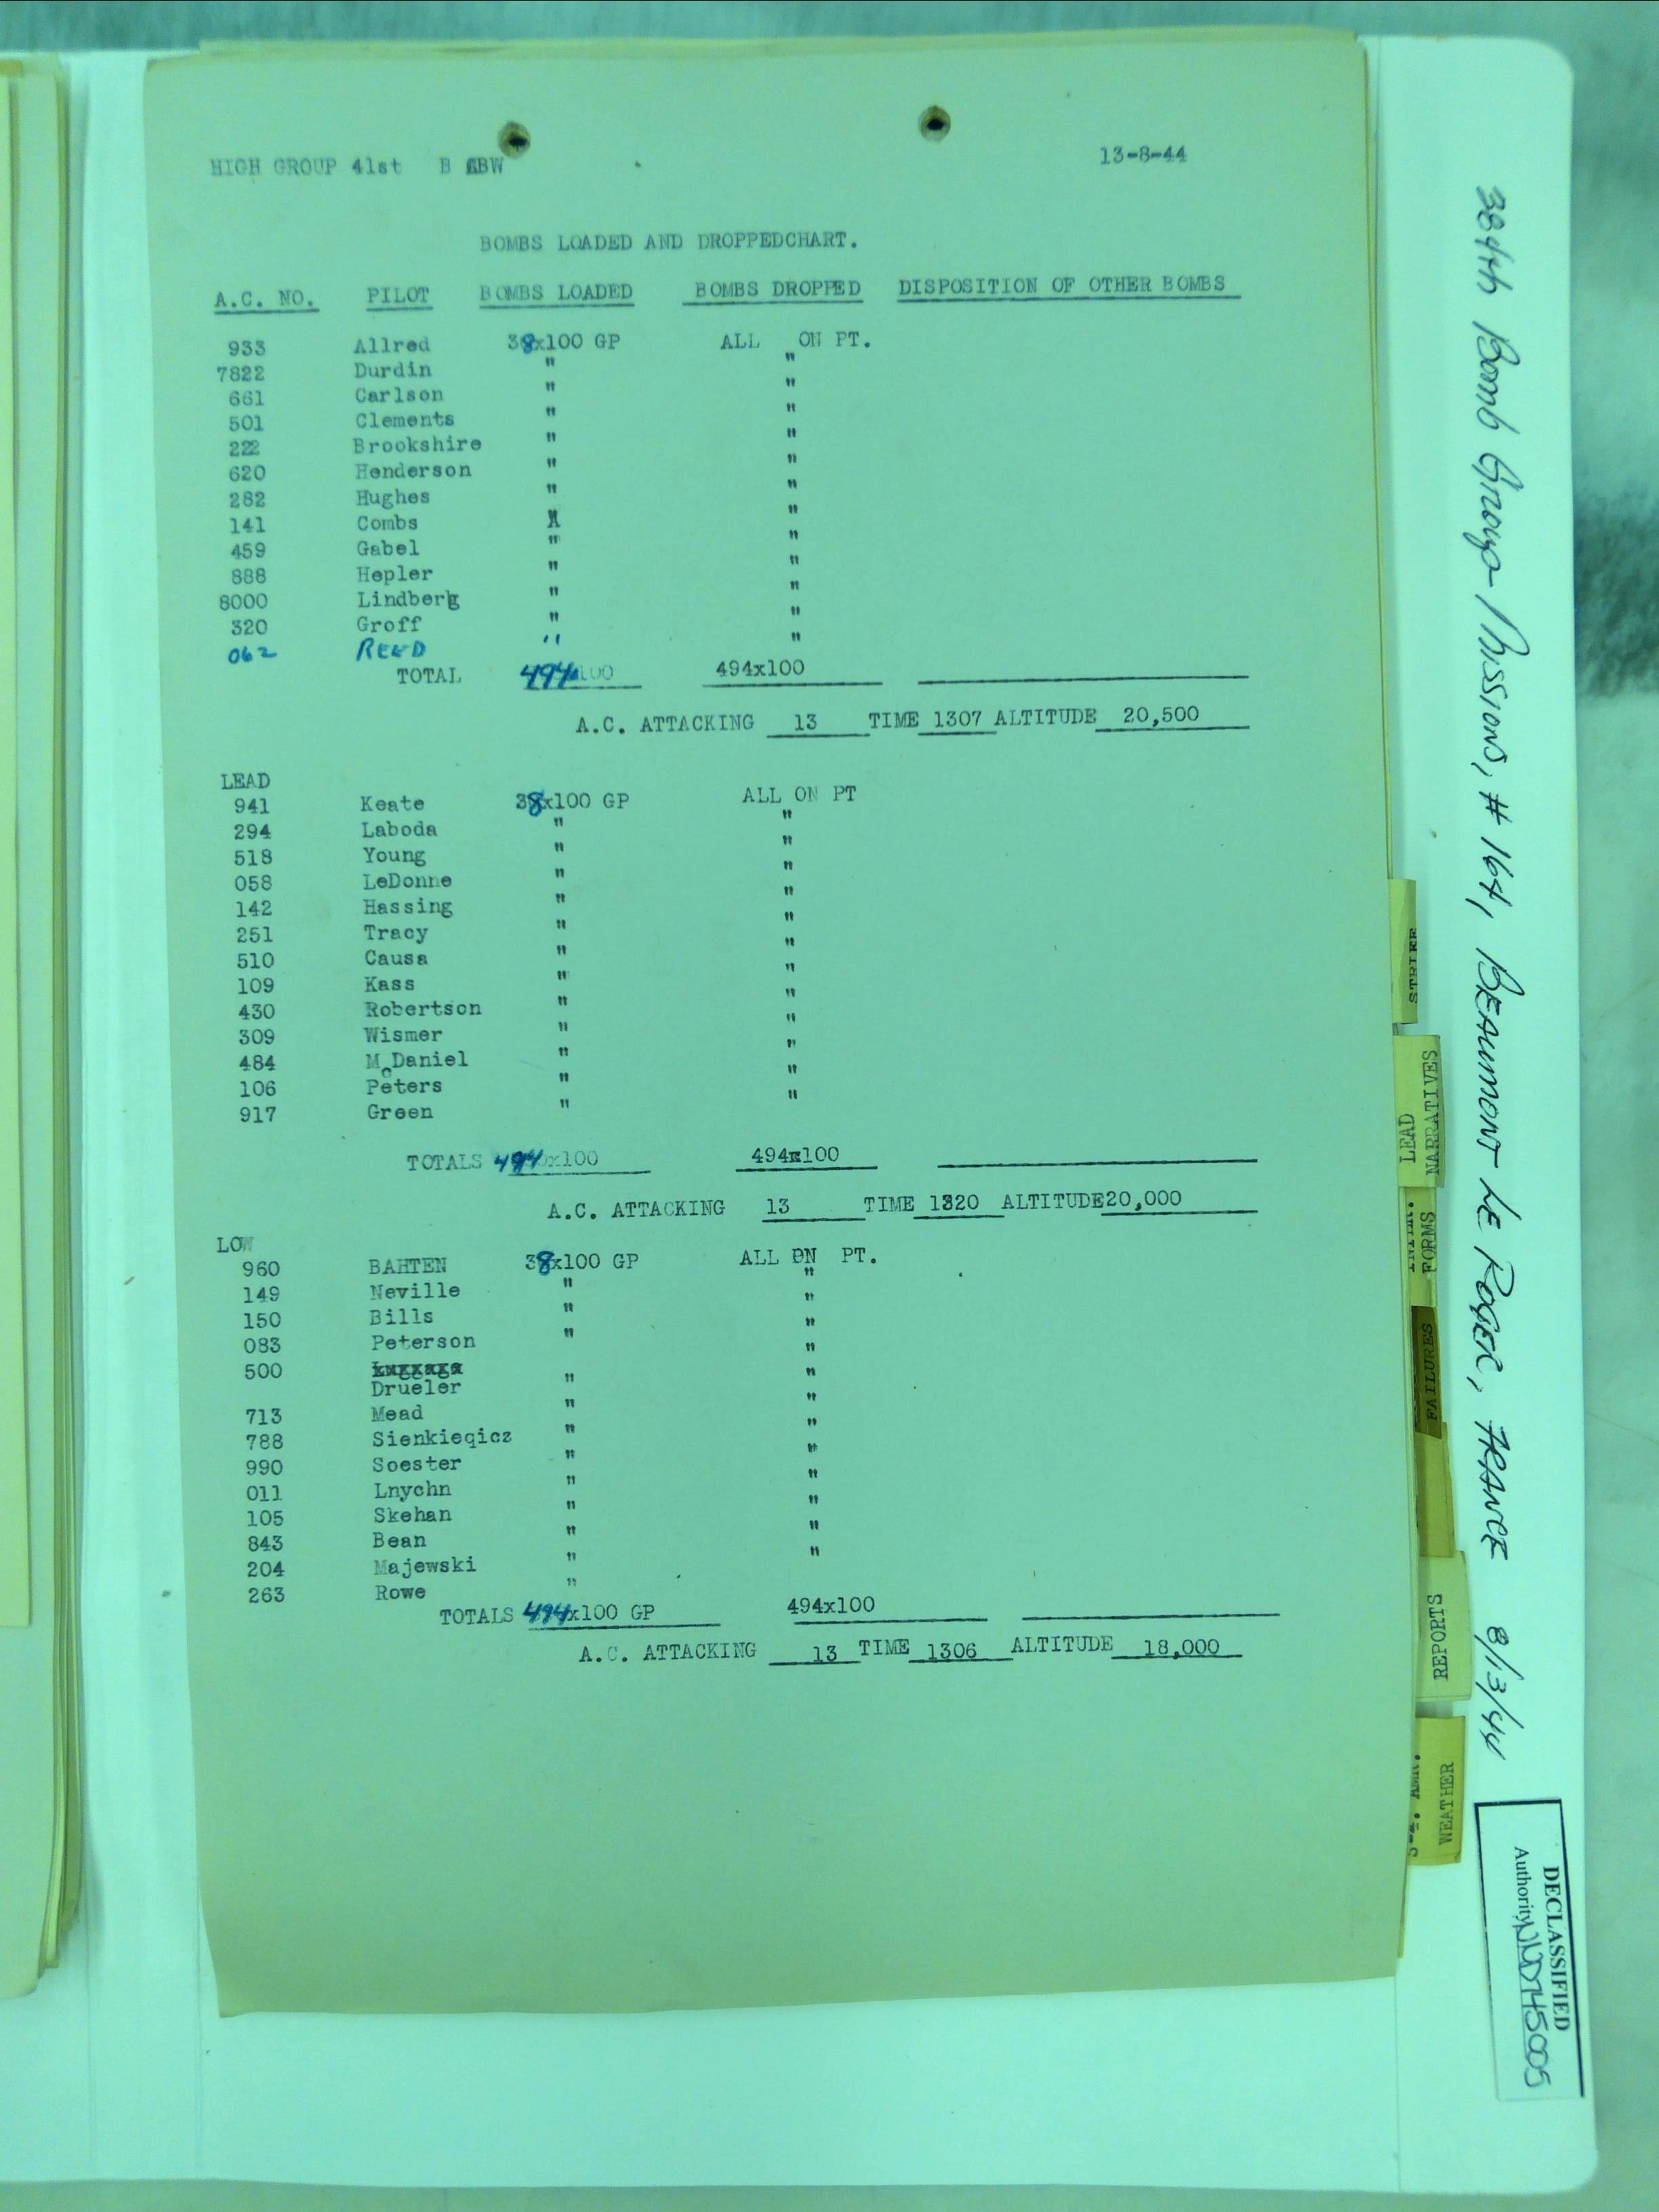 HIGH GROUP 41st B CBW
13-8-44
BOMBS LOADED AND DROPPEDCHART.
A.C. NO. PILOT BOMBS LOADED BOMBS DROPPED DISPOSITION OF OTHER BOMBS
933 Allred 38x100 GP ALL ON PT.
7822 Durdin " "
661 Carlson " "
501 Clements " "
222 Brookshire " "
620 Henderson " "
282 Hughes " "
141 Combs " "
459 Gabel " "
888 Hepler " "
8000 Lindberg " "
320 Groff " "
062 REED " "
TOTAL 494x100 494x100
A.C. ATTACKING 13 TIME 1307 ALTITUDE 20,500
LEAD
941 Keate 38x100 GP ALL ON PT
294 Laboda " "
518 Young " "
058 LeDonne " "
142 Hassing " "
251 Tracy " "
510 Causa " "
109 Kass " "
430 Robertson " "
309 Wismer " "
484 McDaniel " "
106 Peters " "
917 Green " "
TOTALS 494x100 494x100
A.C. ATTACKING 13 TIME 1320 ALTITUDE20,000
LOW
960 BAHTEN 38x100 GP ALL ON PT.
149 Neville " "
150 Bills " "
083 Peterson " "
500
Drueler " "
713 Mead " "
788 Sienkieqicz " "
990 Soester " "
011 Lnychn " "
105 Skehan " "
843 Bean " "
204 Majewski " "
263 Rowe " "
TOTALS 494x100 GP 494x100
A.C. ATTACKING 13 TIME 1306 ALTITUDE 18,000
STRIKE
LEAD
NARRATIVES
FORMS
FAILURES
REPORTS
WEATHER
384th Bomb Group Missions, # 164, BEAUMONT LE ROGER, FRANCE 8/13/44
DECLASSIFIED
Authority NND745005